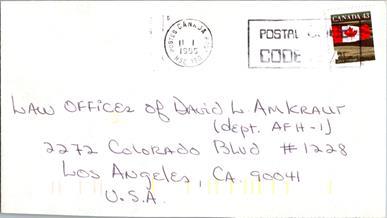 POSTES CANADA POST
1995
POSTAL
CODE
CANADA 43
LAW OFFICES of DAVID L. AMKRAUT
(dept. AFH-1)
2272 COLORADO Blvd #1228
LOS ANGELES, CA. 90041
U.S.A.